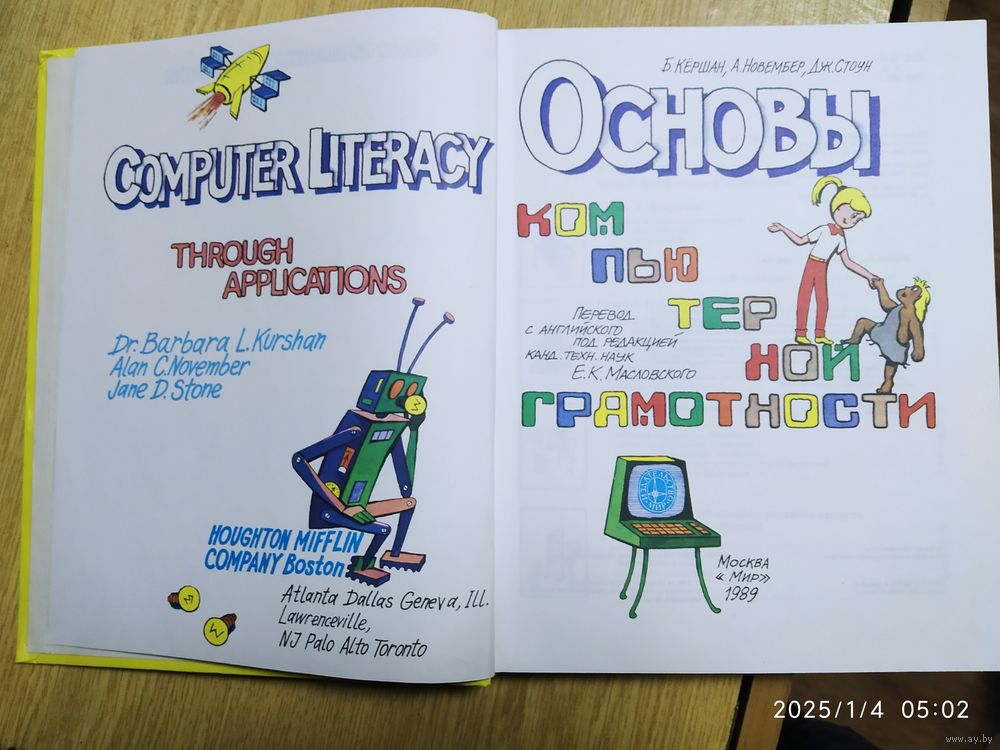 COMPUTER LITERACY
THROUGH
APPLICATIONS
Dr. Barbara L. Kurshan
Alan C. November
Jane D. Stone
HOUGHTON MIFFLIN
COMPANY Boston
Atlanta Dallas Geneva, Ill.
Lawrenceville,
NJ Palo Alto Toronto
Б. КЁРШАН, А. НОВЕМБЕР, ДЖ. СТОУН
ОСНОВЫ
КОМ
ПЬЮ
ТЕР
НОЙ
ГРАМОТНОСТИ
ПЕРЕВОД
С АНГЛИЙСКОГО
ПОД РЕДАКЦИЕЙ
КАНД. ТЕХН. НАУК
Е. К. МАСЛОВСКОГО
ИЗДАТЕЛЬСТВО
МИР
МОСКВА
«МИР»
1989
2025/1/4 05:02
www.ay.by